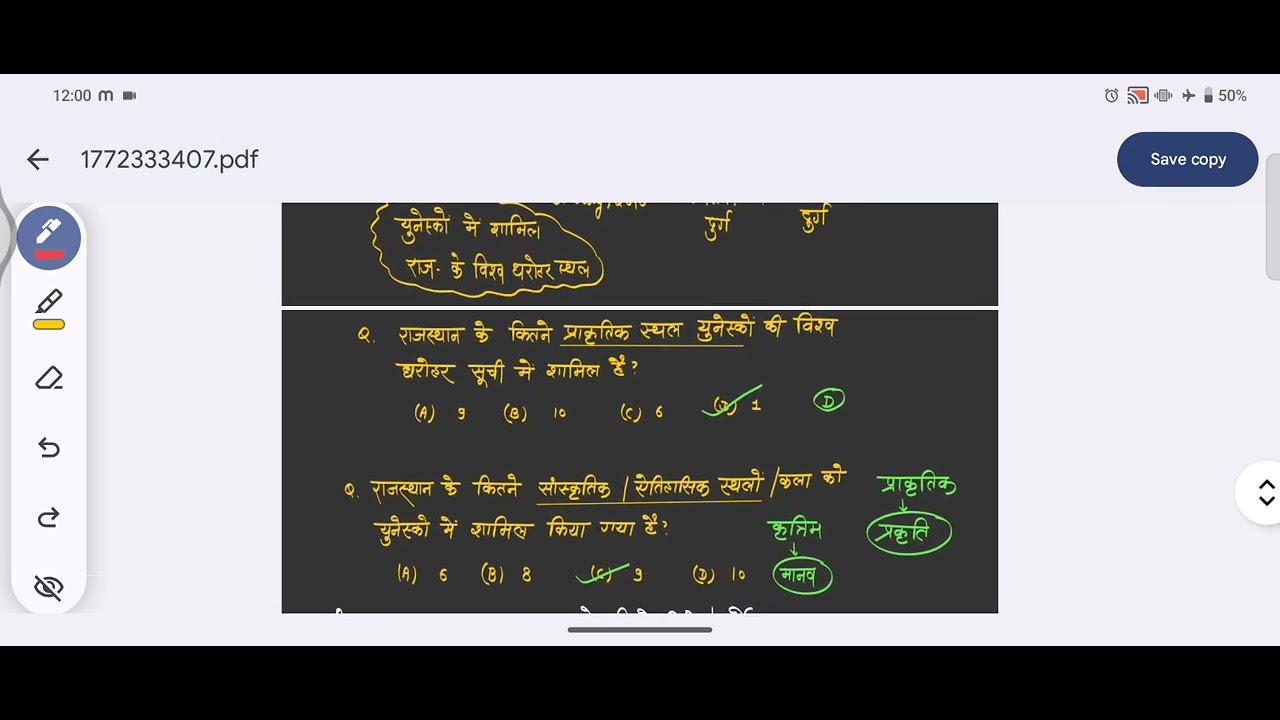 12:00
50%
1772333407.pdf
Save copy
दुर्ग
दुर्ग
युनेस्कों में शामिल
राज. के विश्व धरोहर स्थल
Q. राजस्थान के कितने प्राकृतिक स्थल युनेस्कों की विश्व
धरोहर सूची में शामिल हैं?
(A) 9 (B) 10 (C) 6 (D) 1 D
Q. राजस्थान के कितने सांस्कृतिक / ऐतिहासिक स्थलों / कला को
प्राकृतिक
युनेस्को में शामिल किया गया हैं?
कृत्रिम
प्रकृति
(A) 6 (B) 8 (C) 9 (D) 10
मानव